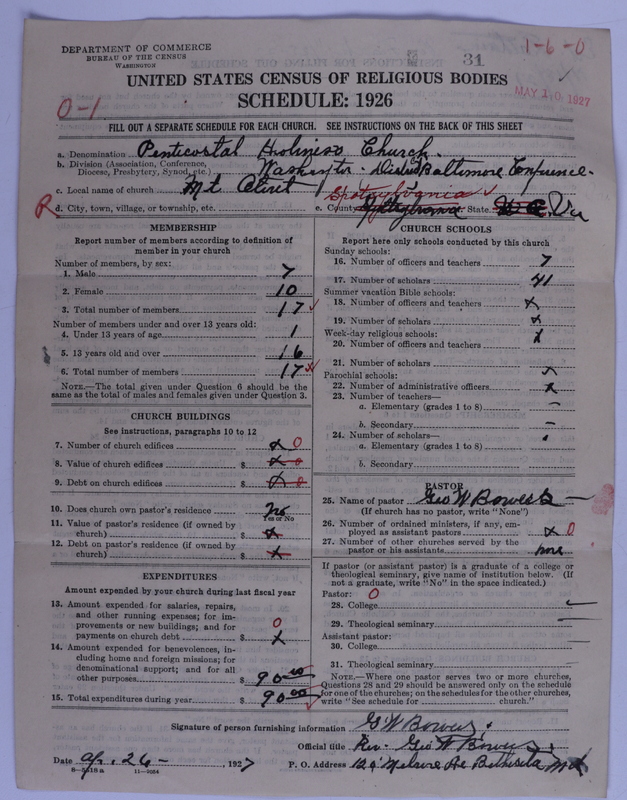 DEPARTMENT OF COMMERCE
BUREAU OF THE CENSUS
WASHINGTON
31
1-6-0
MAY 10 1927
UNITED STATES CENSUS OF RELIGIOUS BODIES
SCHEDULE: 1926
0-1
FILL OUT A SEPARATE SCHEDULE FOR EACH CHURCH. SEE INSTRUCTIONS ON THE BACK OF THIS SHEET
a. Denomination Penticostal Holiness Church.
b. Division (Association, Conference, Diocese, Presbytery, Synod, etc.) Washington - District Baltimore Conference.
c. Local name of church Mt Olivet
Spotsylvania
R d. City, town, village, or township, etc. e. County State Va
MEMBERSHIP
Report number of members according to definition of member in your church
Number of members, by sex:
1. Male 7
2. Female 10
3. Total number of members 17
Number of members under and over 13 years old:
4. Under 13 years of age 1
5. 13 years old and over 16
6. Total number of members 17
NOTE.—The total given under Question 6 should be the same as the total of males and females given under Question 3.
CHURCH BUILDINGS
See instructions, paragraphs 10 to 12
7. Number of church edifices x 0
8. Value of church edifices $ x 0
9. Debt on church edifices $ x 0
10. Does church own pastor's residence no
Yes or No
11. Value of pastor's residence (if owned by church) $ x
12. Debt on pastor's residence (if owned by church) $ x
EXPENDITURES
Amount expended by your church during last fiscal year
13. Amount expended for salaries, repairs, and other running expenses; for improvements or new buildings; and for payments on church debt $ 0 x
14. Amount expended for benevolences, including home and foreign missions; for denominational support; and for all other purposes $ 90.00
15. Total expenditures during year $ 90.00
CHURCH SCHOOLS
Report here only schools conducted by this church
Sunday schools:
16. Number of officers and teachers 7
17. Number of scholars 41
Summer vacation Bible schools:
18. Number of officers and teachers x
19. Number of scholars x
Week-day religious schools:
20. Number of officers and teachers x
21. Number of scholars
Parochial schools: x
22. Number of administrative officers x
23. Number of teachers—
a. Elementary (grades 1 to 8) –
b. Secondary –
24. Number of scholars—
a. Elementary (grades 1 to 8)
b. Secondary
PASTOR
25. Name of pastor Geo W Bowers
(If church has no pastor, write "None")
26. Number of ordained ministers, if any, employed as assistant pastors x 0
27. Number of other churches served by the pastor or his assistants none
If pastor (or assistant pastor) is a graduate of a college or theological seminary, give name of institution below. (If not a graduate, write "No" in the space indicated.)
Pastor: 0
28. College
29. Theological seminary
Assistant pastor:
30. College
31. Theological seminary
NOTE.—Where one pastor serves two or more churches, Questions 28 and 29 should be answered only on the schedule for one of the churches; on the schedules for the other churches, write "See schedule for church."
Signature of person furnishing information G W Bowers.
Official title Rev. Geo W Bowers.
Date Apr. 26 – , 1927
P. O. Address Bethesda Md
8—5518 a 11—9084